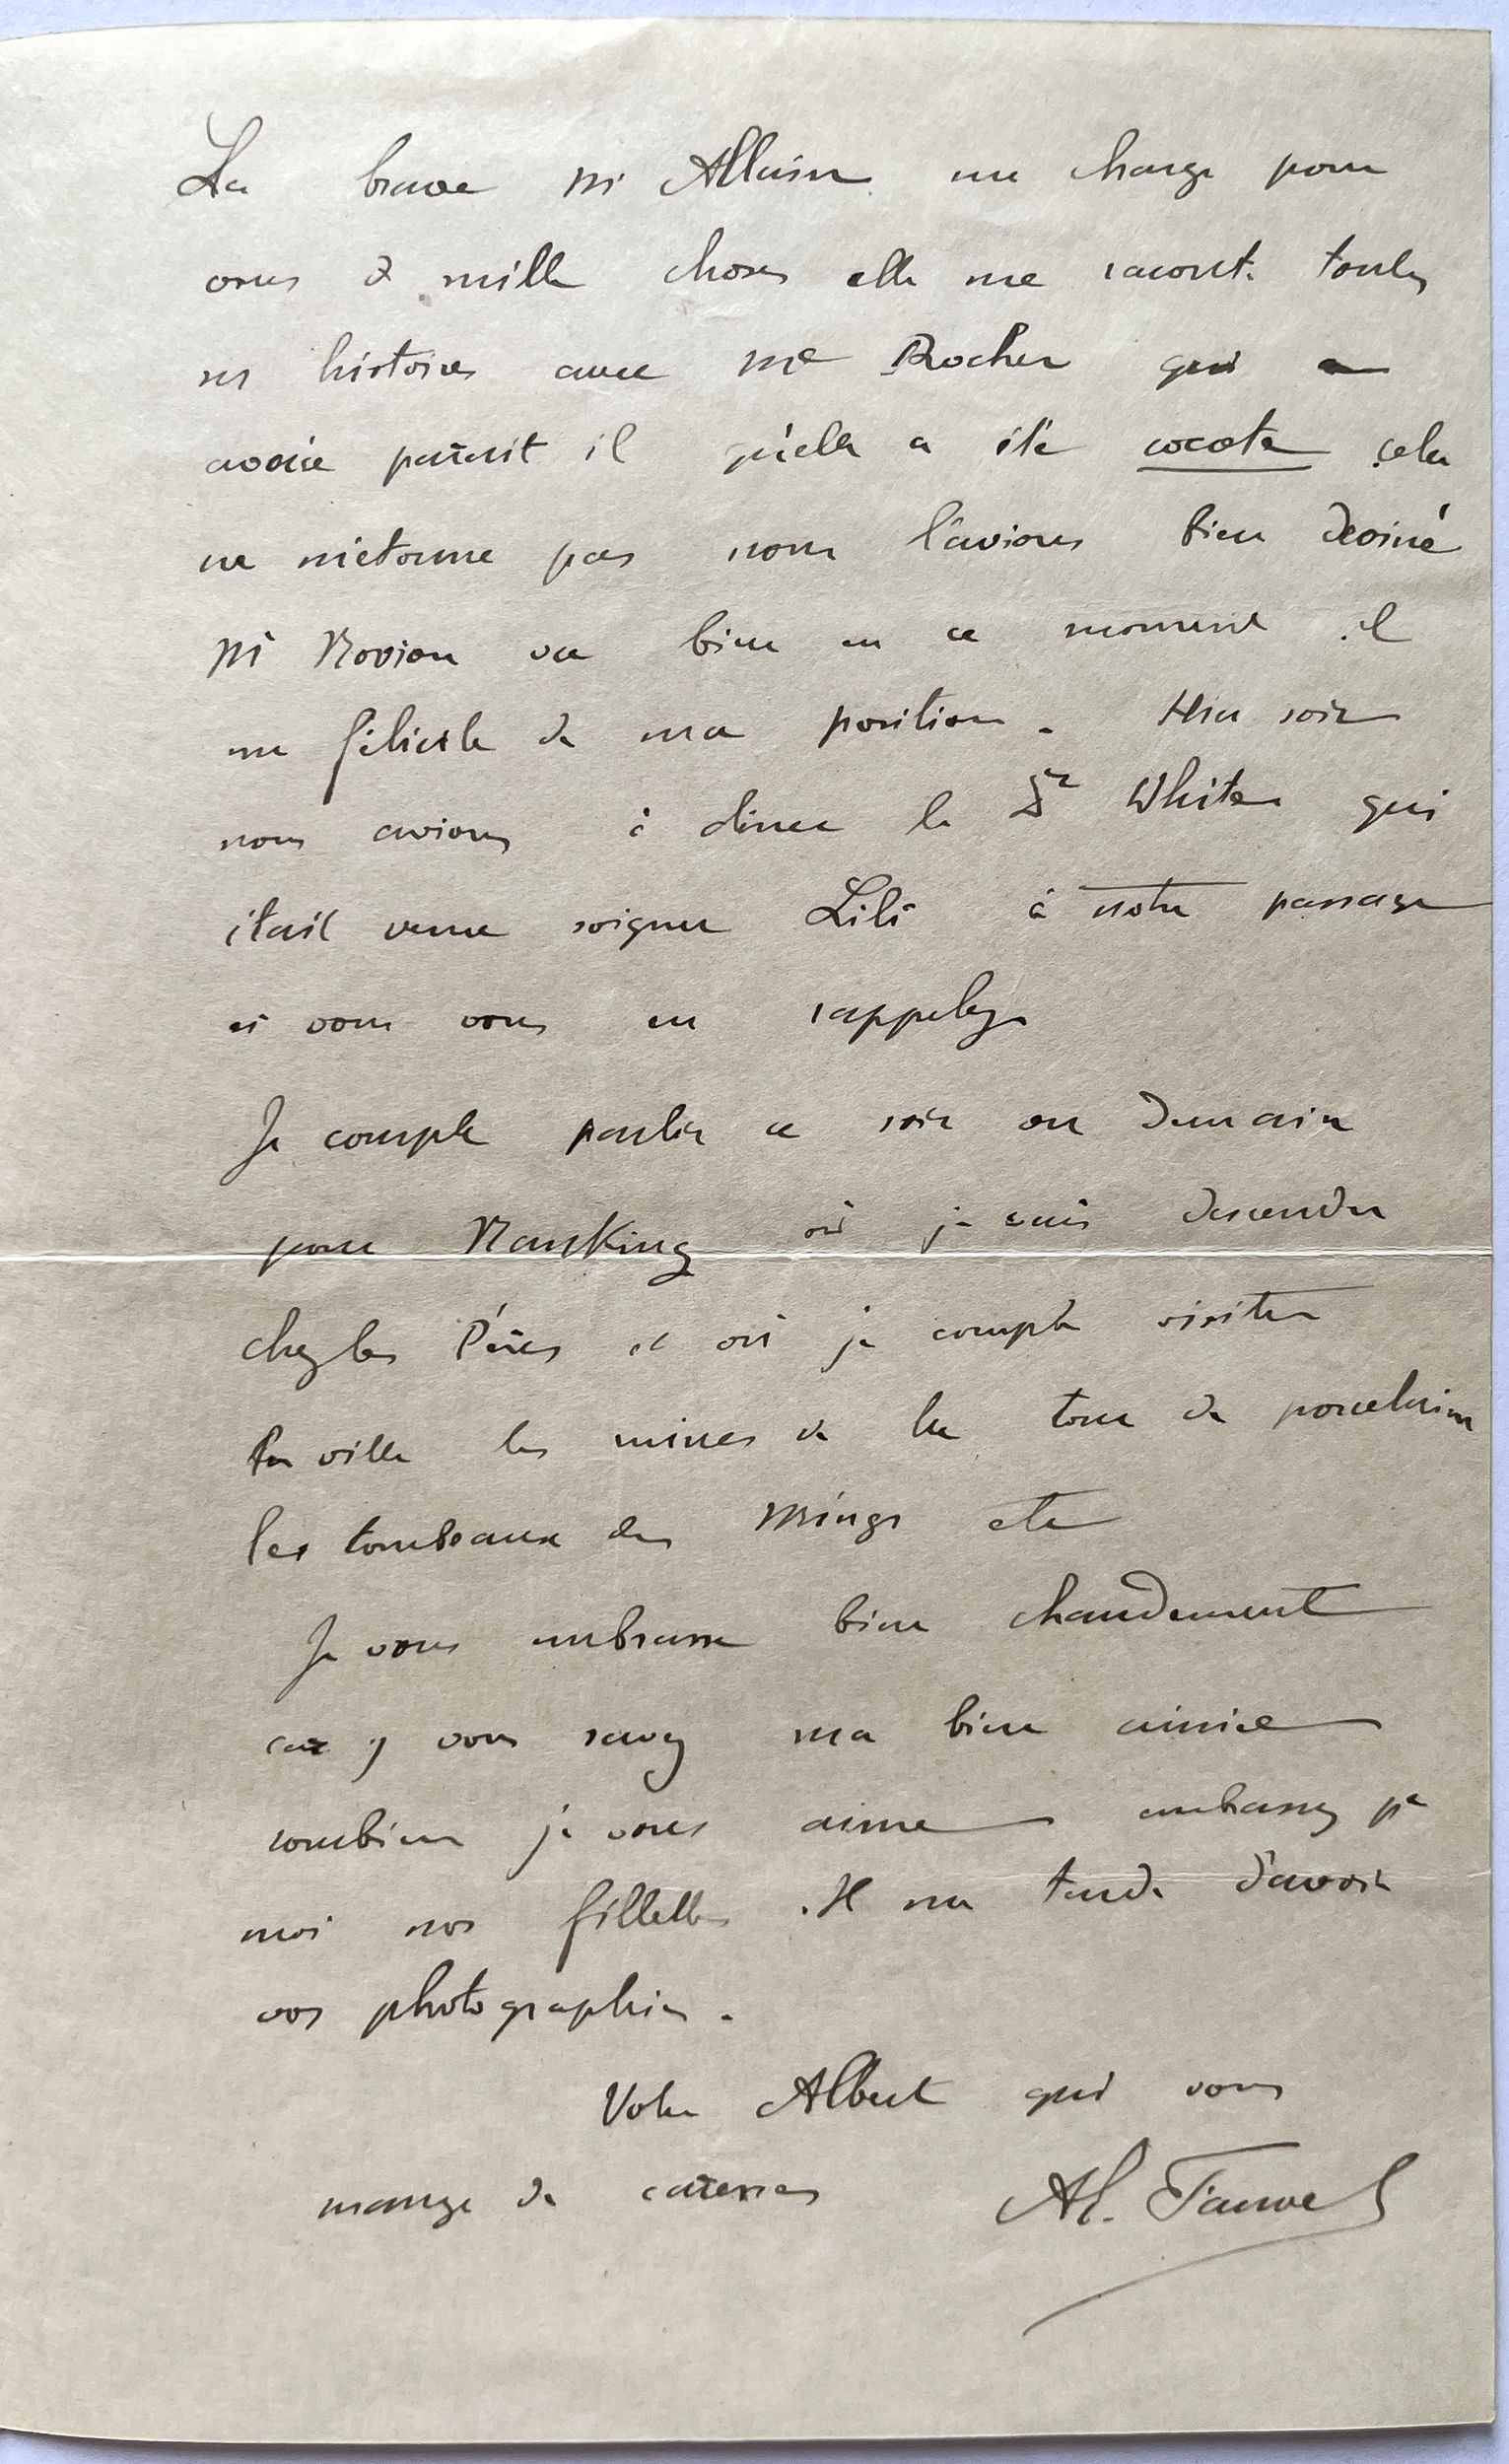 La brave Me Allain me charge pour
vous de mille choses elle me raconte toutes
ses histoires avec Me Rocher qui
avoue parait il qu'elle a été cocote cela
ne m'étonne pas nous l'avions bien deviné
Mr va bien en ce moment il
me félicite de ma position. Hier soir
nous avions à diner le Dr White qui
était venu soigner Lili à notre passage
si vous vous en rappelez
Je compte partir ce soir ou demain
pour Nanking où je vais descendre
chez les Pères et où je compte visiter
la ville les ruines de la tour de porcelaine
les tombeaux des Mings etc
Je vous embrasse bien chaudement
car vous savez ma bien aimée
combien je vous aime embrassez pr
moi nos fillettes. Il me tarde d'avoir
vos photographies.
Votre Albert qui vous
mange de caresses Al. Fauvel